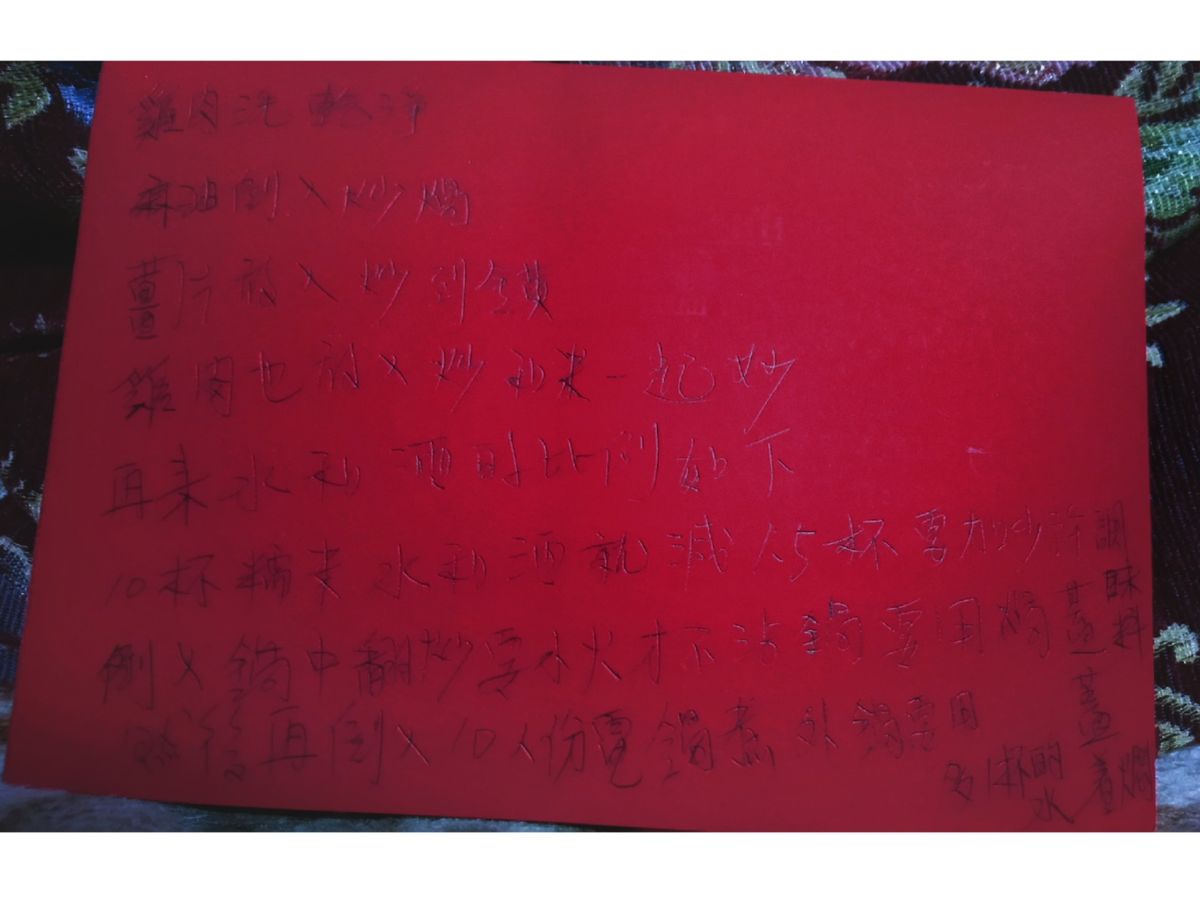 雞肉洗乾淨
麻油倒入炒鍋
薑片放入炒到金黄
雞肉也放入炒和米一起炒
再来水和酒的比例如下
10杯糯米水和酒就減1.5杯要加少許調味料
倒入鍋中翻炒要小火才不沾鍋要用鍋蓋蓋着燜
然後再倒入10人份電鍋煮外鍋要用
多1杯的水